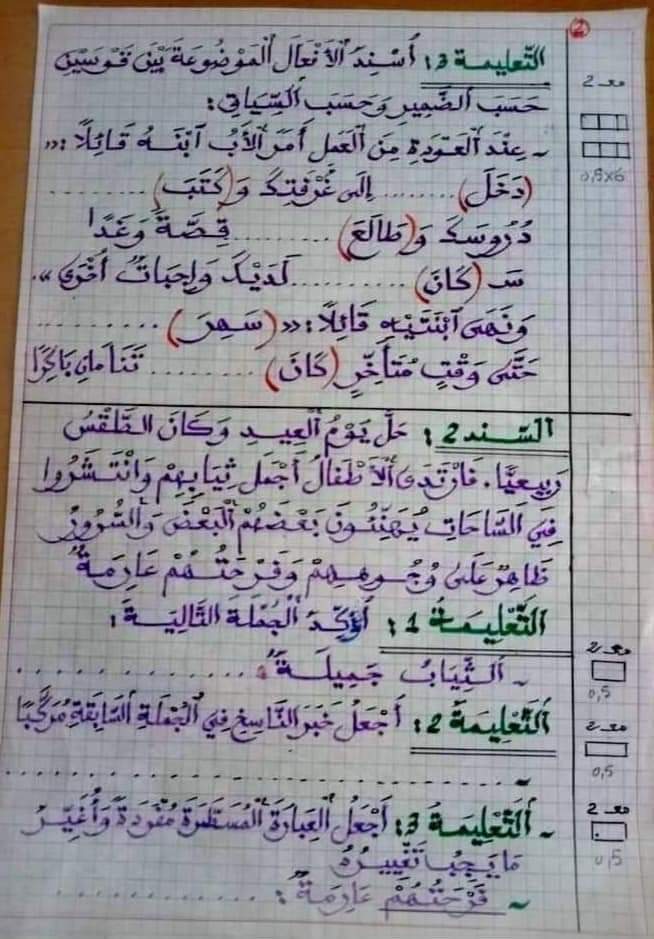 2
التّعليمة 3: أُسْنِدُ الْأَفْعَالَ الْمَوْضُوعَةَ بَيْنَ قَوْسَيْنِ
حَسَبَ الضَّمِيرِ وَحَسَبَ السِّيَاقِ:
ـ عِنْدَ الْعَوْدَةِ مِنَ الْعَمَلِ أَمَرَ الْأَبُ ابْنَهُ قَائِلًا: «
(دَخَلَ) ........ إِلَى غُرْفَتِكَ وَ(كَتَبَ) ........
دُرُوسَكَ وَ(طَالَعَ) ........ قِصَّةً وَغَدًا
سَـ (كَانَ) ........ لَدَيْكَ وَاجِبَاتٌ أُخْرَى».
وَنَهَى ابْنَتَيْهِ قَائِلًا: «(سَهِرَ) ........
حَتَّى وَقْتٍ مُتَأَخِّرٍ (كَانَ) ........ تَنَامَانِ بَاكِرًا
مع 2
0,5x6
السّند 2: حَلَّ يَوْمُ الْعِيدِ وَكَانَ الطَّقْسُ
رَبِيعِيًّا. فَارْتَدَى الْأَطْفَالُ أَجْمَلَ ثِيَابِهِمْ وَانْتَشَرُوا
فِي السَّاحَاتِ يُهَنِّئُونَ بَعْضُهُمْ الْبَعْضَ وَالسُّرُورُ
ظَاهِرٌ عَلَى وُجُوهِهِمْ وَفَرْحَتُهُمْ عَارِمَةٌ
التَّعْلِيمَةُ 1: أُؤَكِّدُ الْجُمْلَةَ التَّالِيَةَ:
ـ الثِّيَابُ جَمِيلَةٌ. ............
مع 2
0,5
التَّعْلِيمَةُ 2: أَجْعَلُ خَبَرَ النَّاسِخِ فِي الْجُمْلَةِ السَّابِقَةِ مُرَكَّبًا
ـ ........................
مع 2
0,5
ـ التَّعْلِيمَةُ 3: أَجْعَلُ الْعِبَارَةَ الْمُسَطَّرَةَ مُفْرَدَةً وَأُغَيِّرُ
مَا يَجِبُ تَغْيِيرُهُ
ـ فَرْحَتُهُمْ عَارِمَةٌ: ............
مع 2
0,5